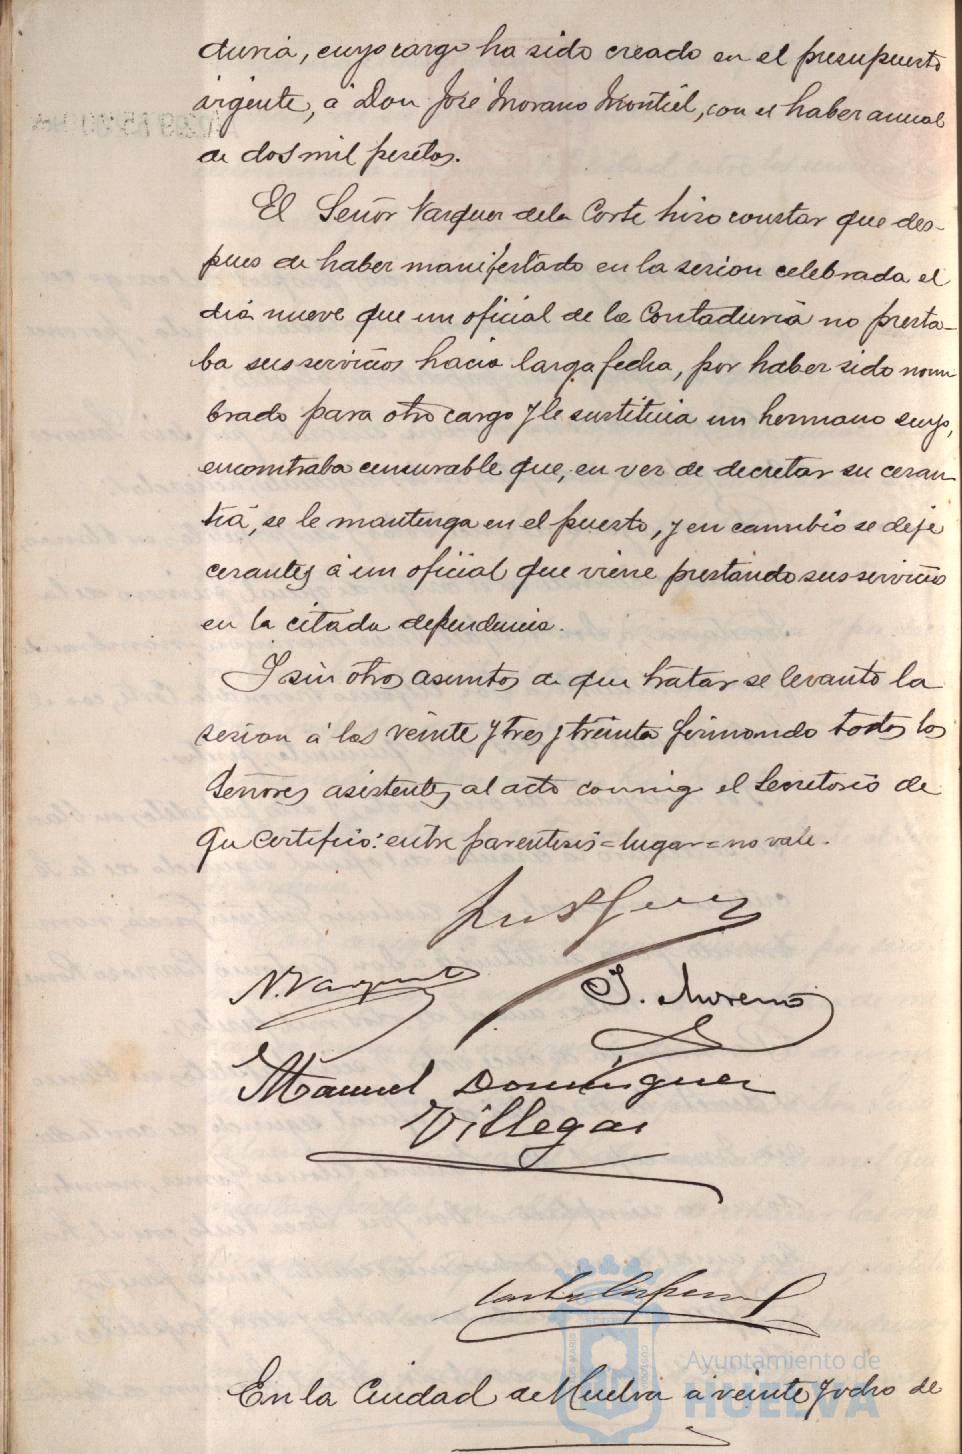 duria, cuyo cargo ha sido creado en el presupuesto
vigente, á Don José Morano Montiel, con el haber anual
de dos mil pesetas.
El Señor Vazquez de la Corte hizo constar que des-
pues de haber manifestado en la sesion celebrada el
dia nueve que un oficial de la Contaduria no presta-
ba sus servicios hacia larga fecha, por haber sido nom
brado para otro cargo y le sustituia un hermano suyo,
encontraba censurable que, en vez de decretar su cesan
tia, se le mantenga en el puesto, y en cambio se deje
cesantes á un oficial que viene prestando sus servicios
en la citada dependencia.
Y sin otros asuntos de que tratar se levantó la
sesion á las veinte y tres y treinta firmando todos los
Señores asistentes al acto conmigo el Secretario de
que certifico: entre parentesis = lugar = no vale.
N. Vazquez
J. Moreno
Manuel Dominguez
Villegas
Ayuntamiento de
HUELVA
En la Ciudad de Huelva á veinte y ocho de